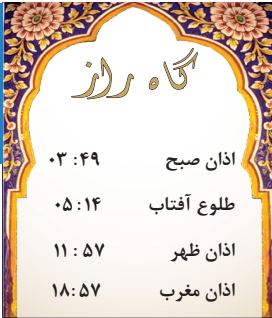 گاه راز
اذان صبح ۰۳:۴۹
طلوع آفتاب ۰۵:۱۴
اذان ظهر ۱۱:۵۷
اذان مغرب ۱۸:۵۷